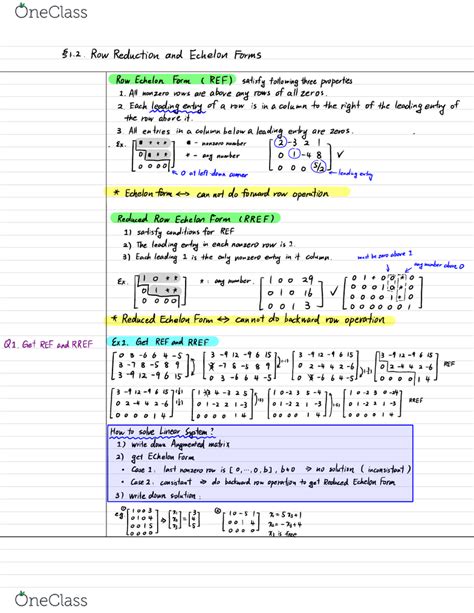 OneClass
§1.2. Row Reduction and Echelon Forms
Row Echelon Form (REF) satisfy following three properties
1. All nonzero rows are above any rows of all zeros.
2. Each leading entry of a row is in a column to the right of the leading entry of
the row above it.
3. All entries in a column below a leading entry are zeros.
Ex.
■ - nonzero number
* - any number
0 at left-down corner
2 -3 2 1
0 1 -4 8
0 0 0 5/2
leading entry
* Echelon form ↔ can not do forward row operation
Reduced Row Echelon Form (RREF)
1) satisfy conditions for REF
2) The leading entry in each nonzero row is 1.
3) Each leading 1 is the only nonzero entry in it column.
must be zero above 1
any number above 0
Ex.
1 0 * *
0 1 * *
0 0 0 0
* : any number.
1 0 0 29
0 1 0 16
0 0 1 3
* Reduced Echelon Form ↔ cannot do backward row operation
Q1. Get REF and RREF
Ex1. Get REF and RREF
0 3 -6 6 4 -5
3 -7 8 -5 8 9
3 -9 12 -9 6 15
3 -9 12 -9 6 15
3 -7 8 -5 8 9
0 3 -6 6 4 -5
3 -9 12 -9 6 15
0 2 -4 4 2 -6
0 3 -6 6 4 -5
3 -9 12 -9 6 15
0 2 -4 4 2 -6
0 0 0 0 1 4
REF
3 -9 12 -9 6 15
0 2 -4 4 2 -6
0 0 0 0 1 4
1 -3 4 -3 2 5
0 1 -2 2 1 -3
0 0 0 0 1 4
1 0 -2 3 5 -4
0 1 -2 2 1 -3
0 0 0 0 1 4
RREF
How to solve Linear System?
1) write down Augmented matrix
2) get Echelon Form
• Case 1: last nonzero row is [0, ⋯, 0, b], b≠0 ⇒ no solution (inconsistant)
• Case 2: consistant ⇒ do backward row operation to get Reduced Echelon Form
3) write down solution:
eg
1 0 0 3
0 1 0 4
0 0 1 5
0 0 0 0
x1
x2
x3
=
3
4
5
1 0 -5 1
0 0 1 4
0 0 0 0
x3 is free
OneClass